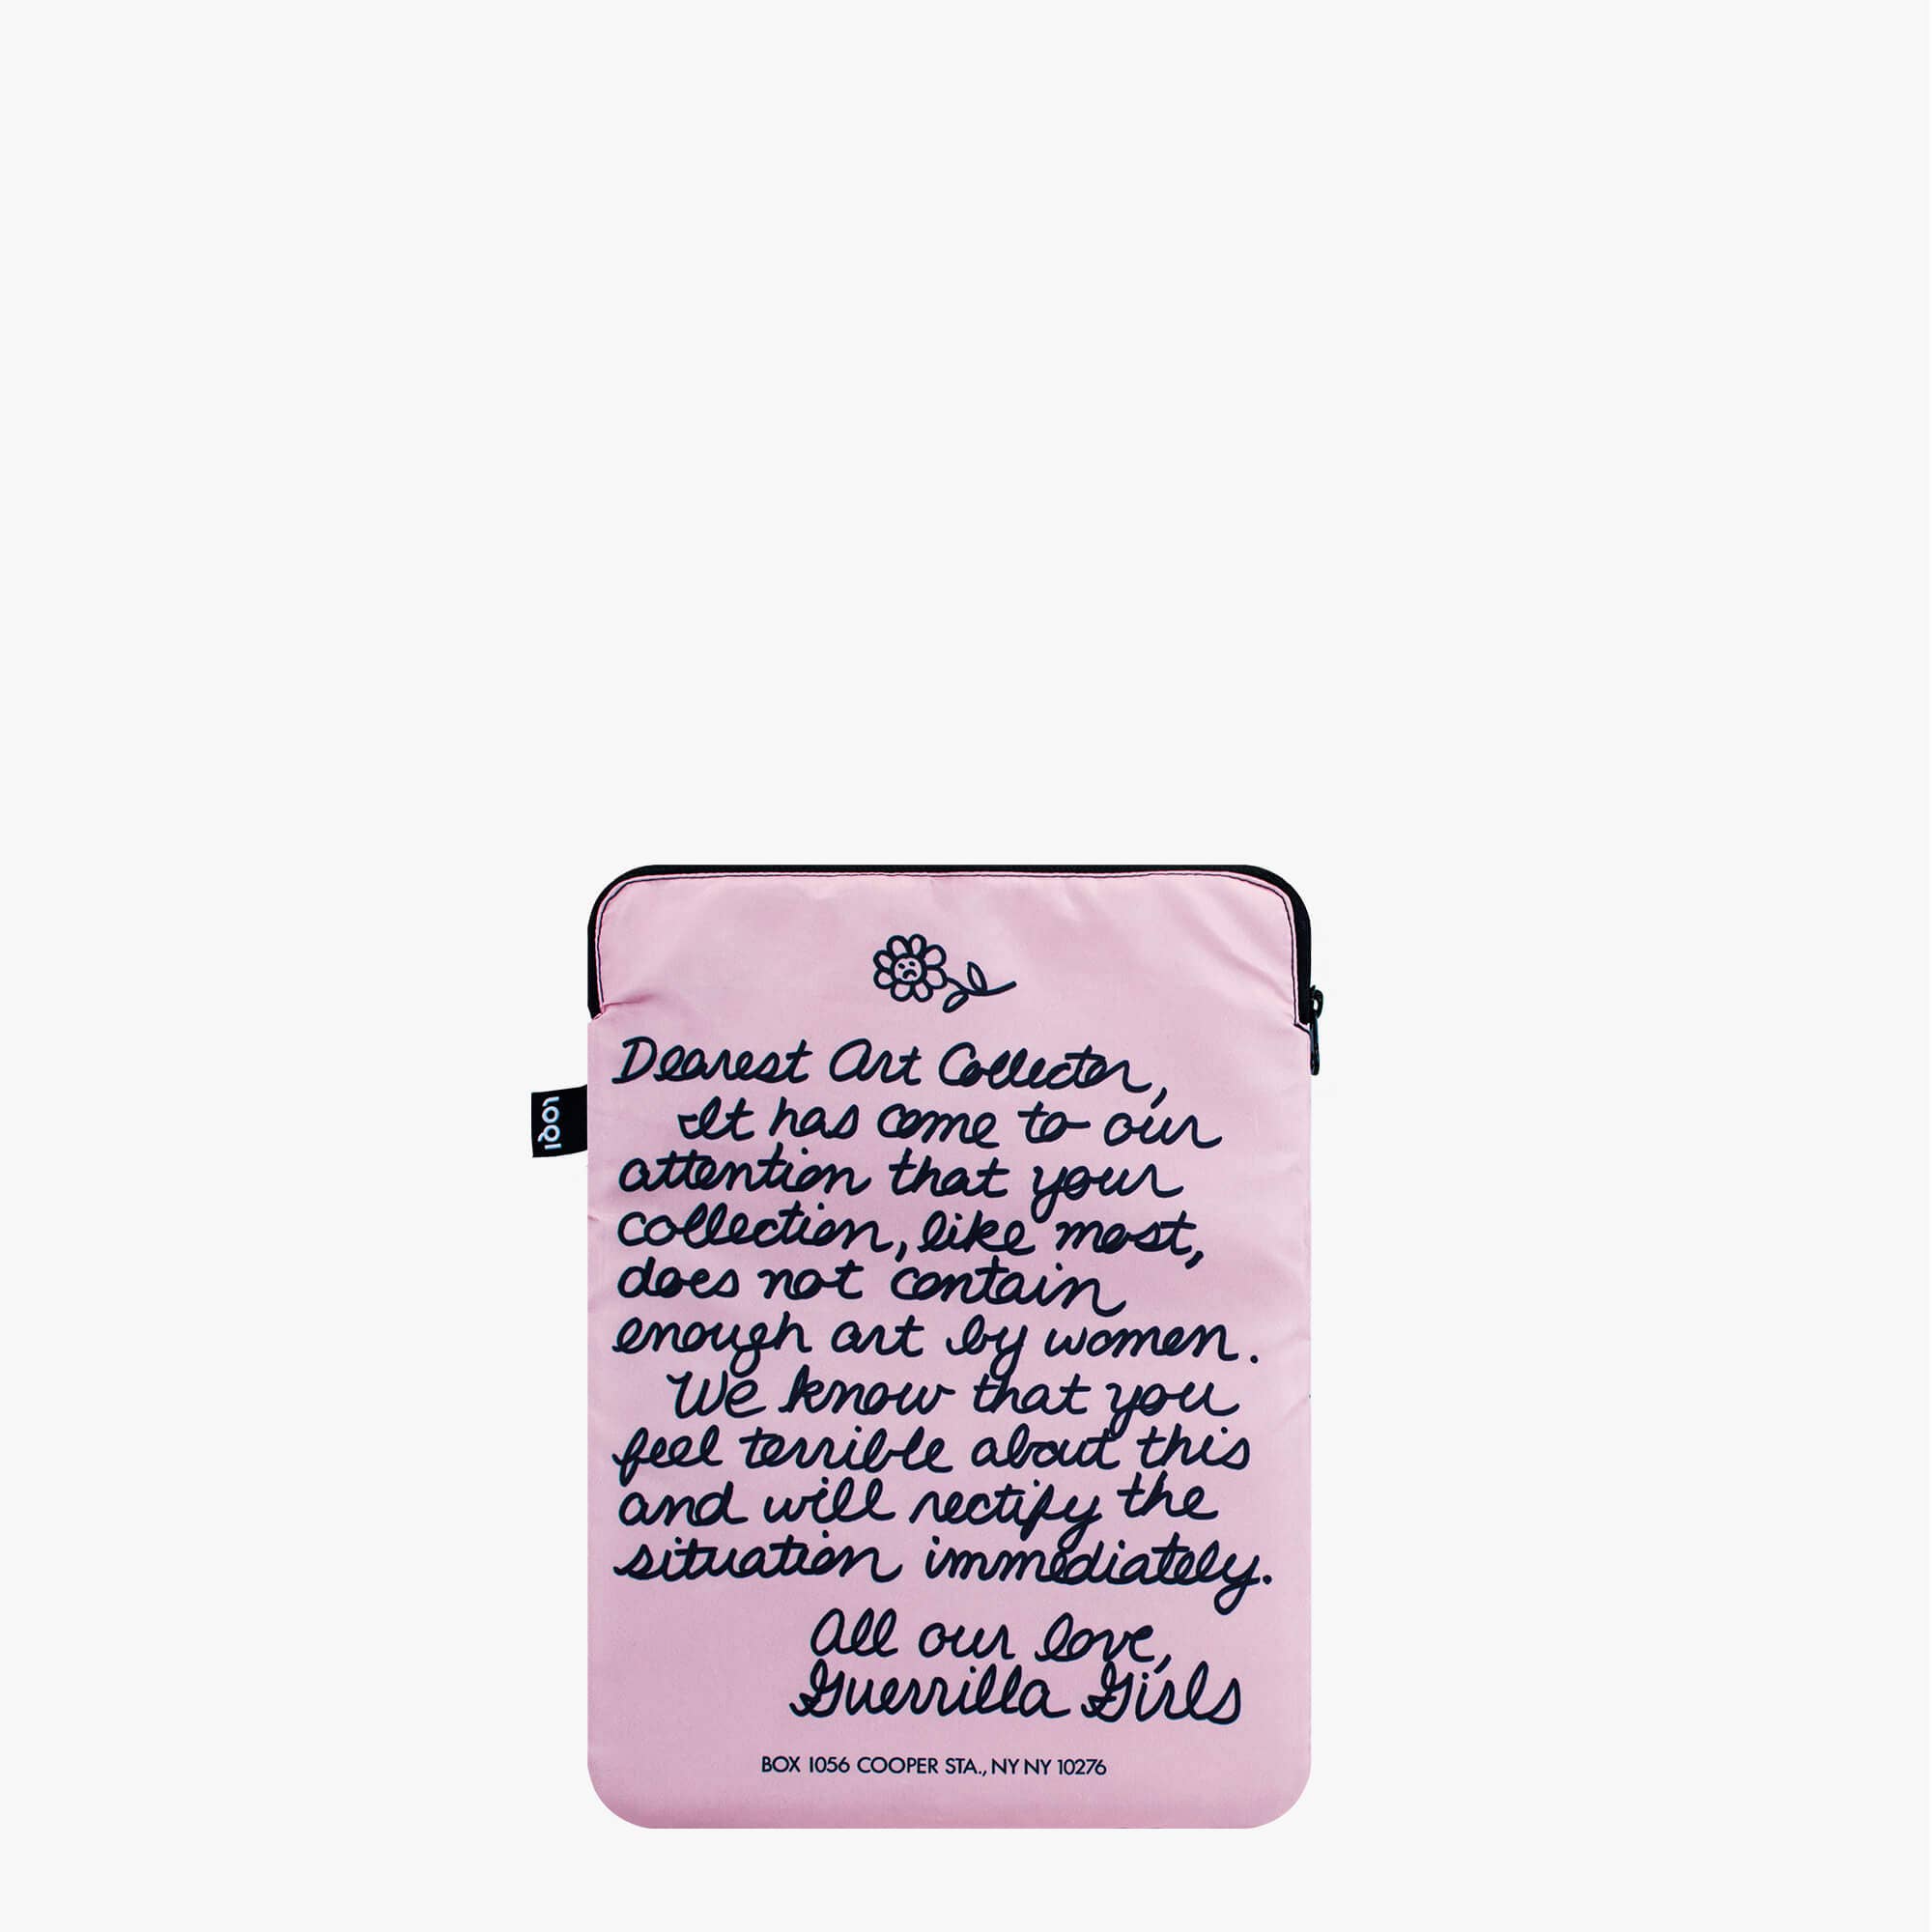 Dearest Art Collector,
It has come to our
attention that your
collection, like most,
does not contain
enough art by women.
We know that you
feel terrible about this
and will rectify the
situation immediately.
All our love,
Guerrilla Girls
BOX 1056 COOPER STA., NY NY 10276
loqi